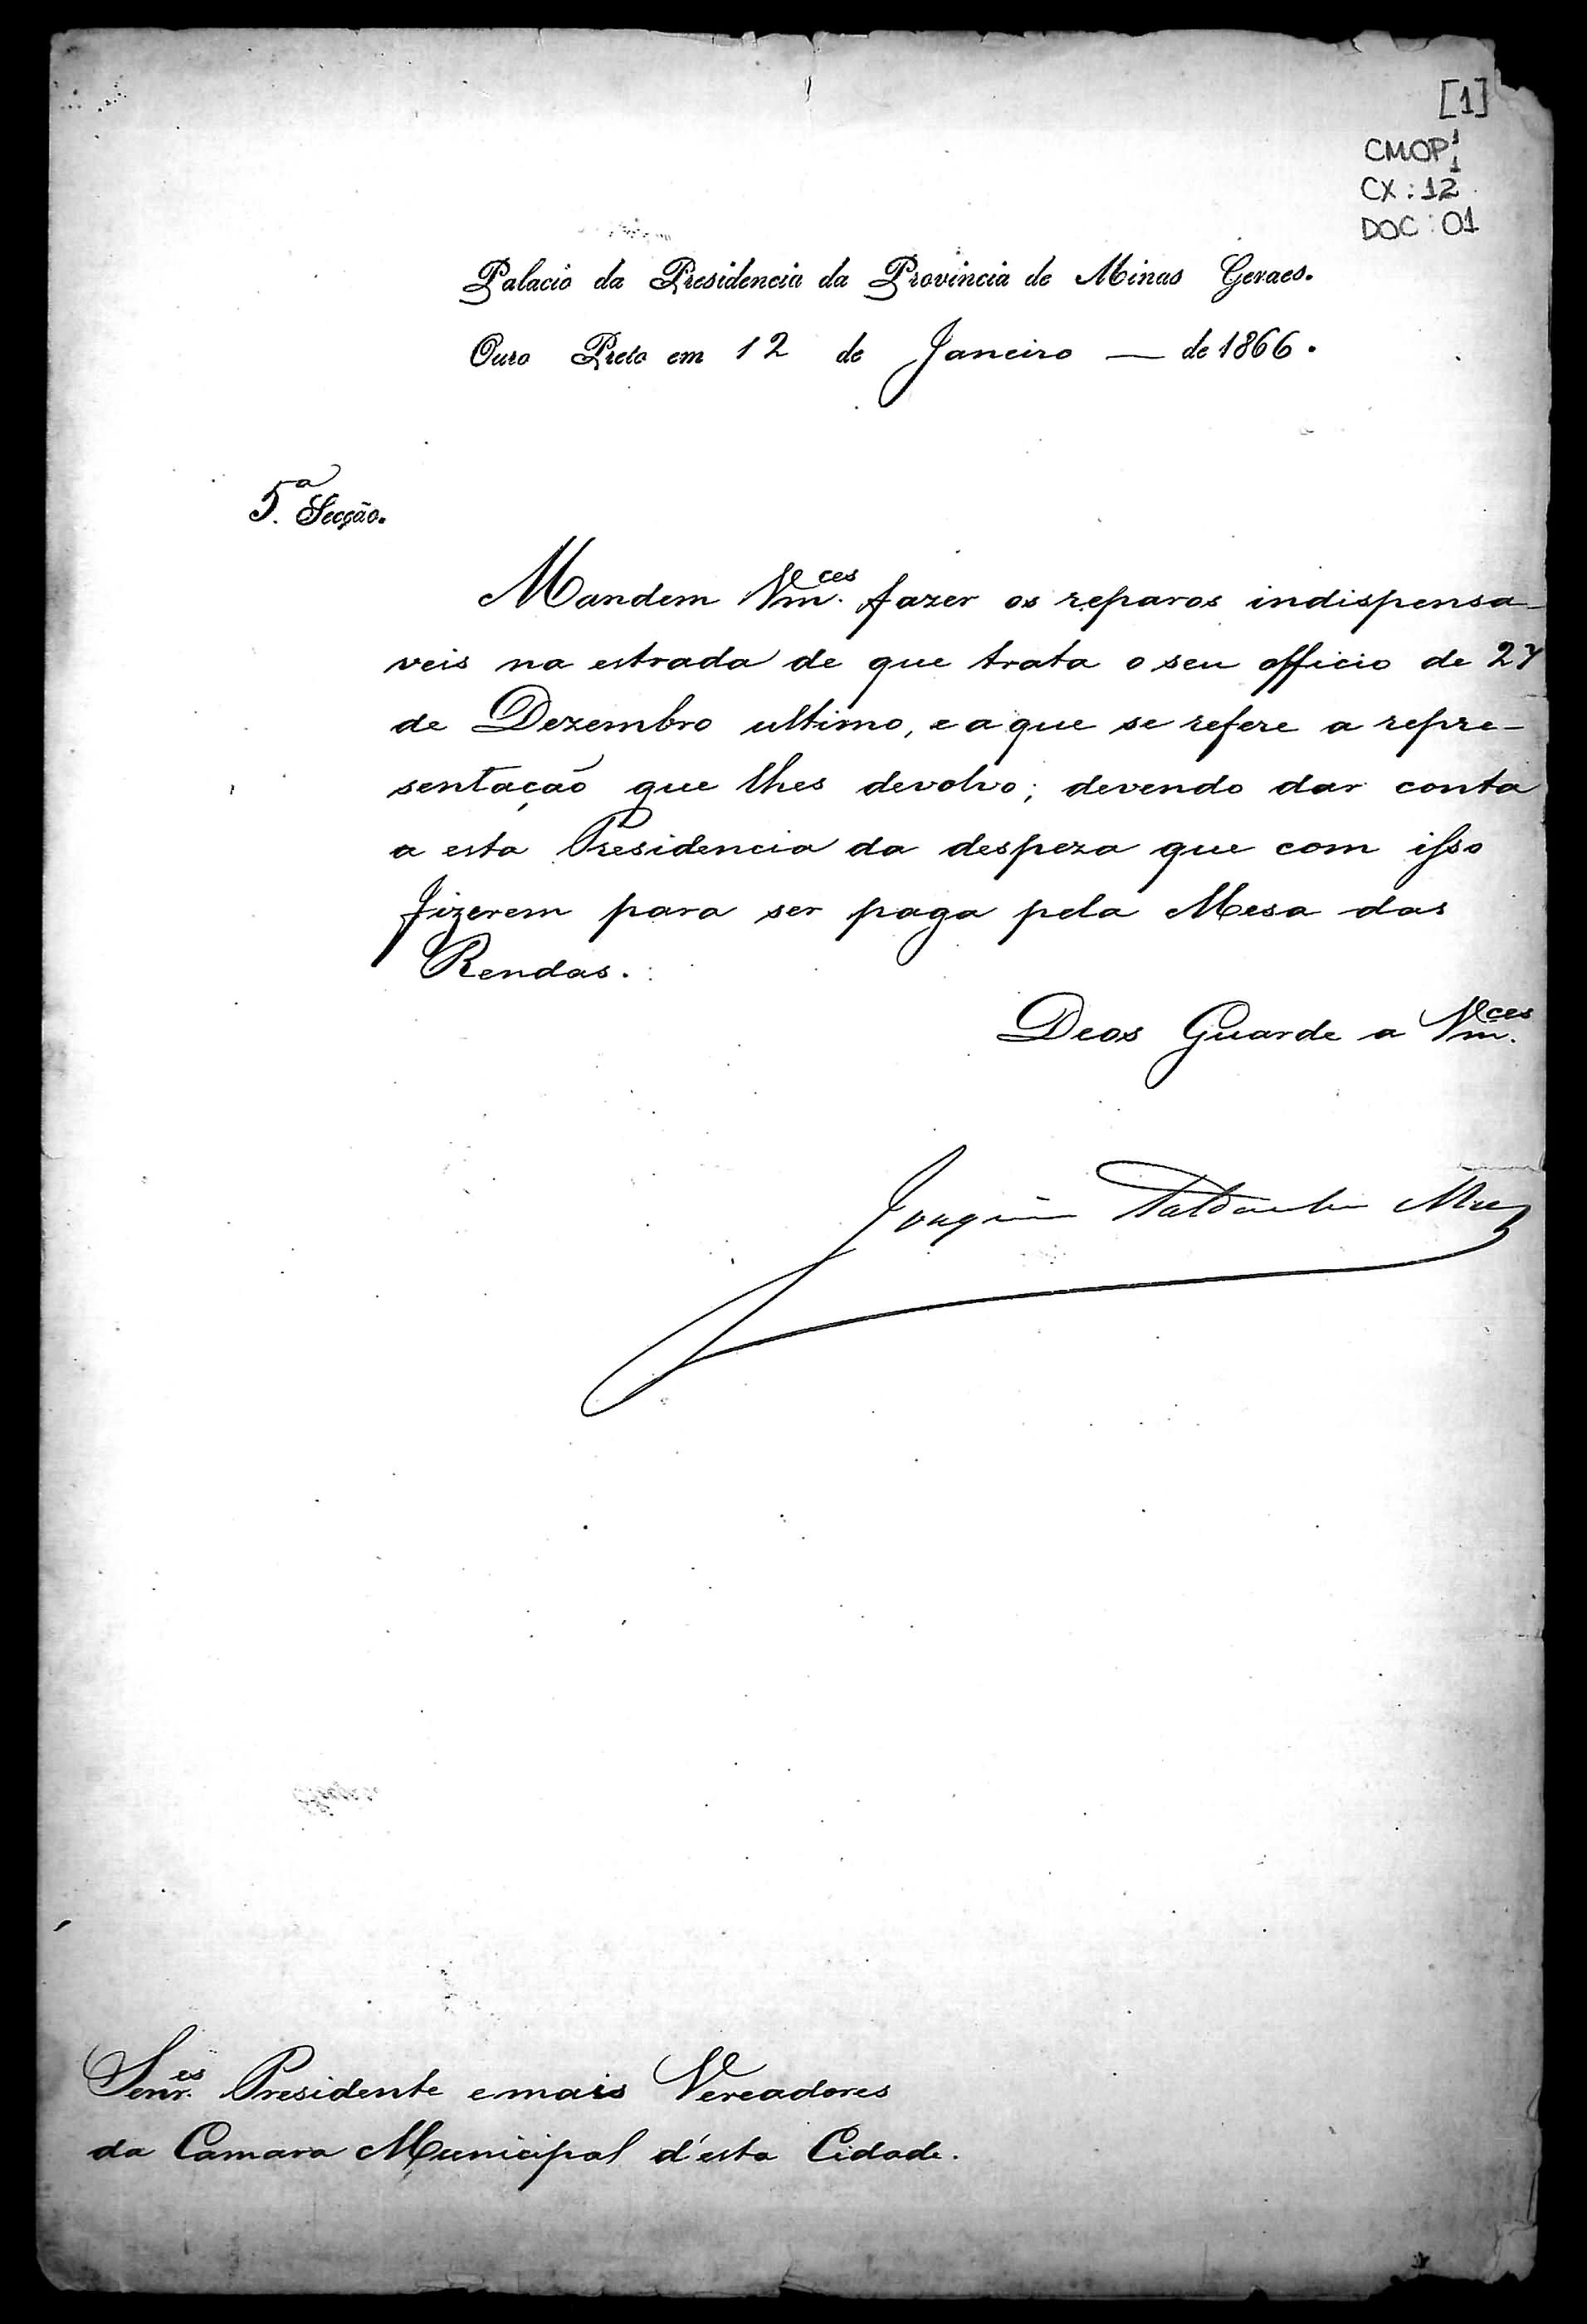 [1]
CMOP 1 1
CX: 12
DOC: 01
Palacio da Presidencia da Provincia de Minas Geraes.
Ouro Preto em 12 de Janeiro — de 1866.
5.ª Secção.
Mandem Vm.ces fazer os reparos indispensa-
veis na estrada de que trata o seu officio de 27
de Dezembro ultimo, e a que se refere a repre-
sentação que lhes devolvo; devendo dar conta
a esta Presidencia da despeza que com isso
fizerem para ser paga pela Mesa das
Rendas.
Deos Guarde a Vm.ces
Joaquim Saldanha Mar
Senr.es Presidente e mais Vereadores
da Camara Municipal d'esta Cidade.